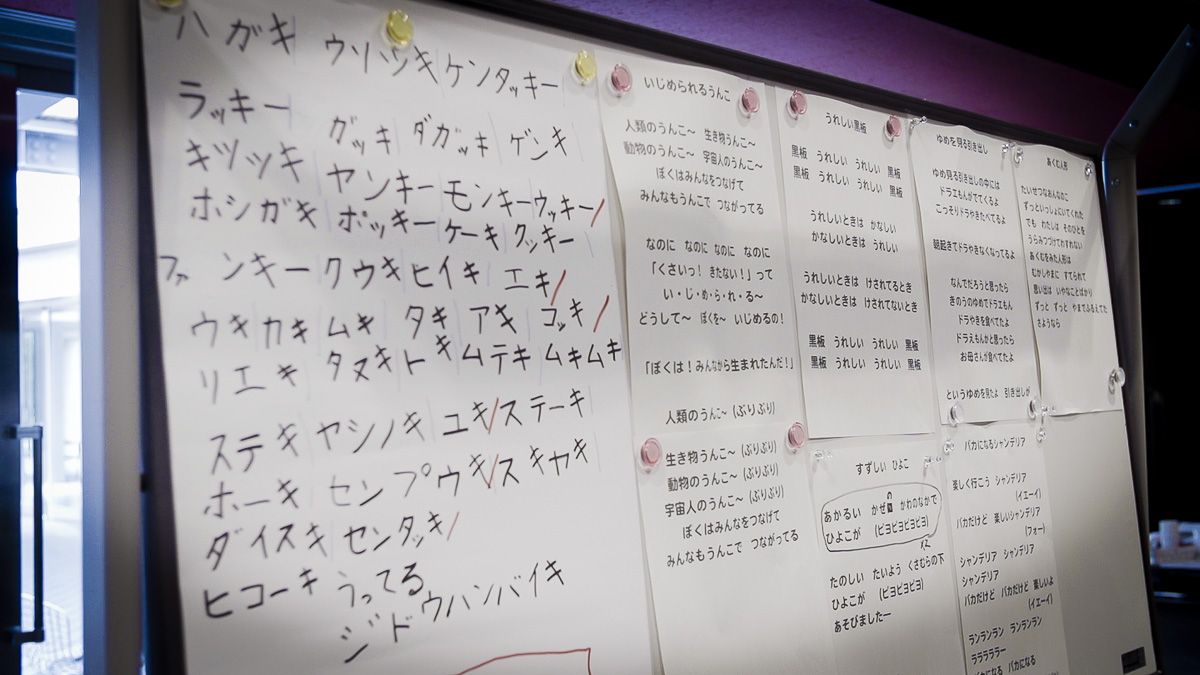 ハガキ ウソハッキ ケンタッキー
ラッキー ガッキ ダガッキ ゲンキ
キツツキ ヤンキー モンキー ウッキー
ホシガキ ポッキー ケーキ クッキー
ファンキー クウキ ヒイキ エキ
ウキ カキ ムキ タキ アキ コッキ
リエキ タヌキ トキ ムテキ ムキムキ
ステキ ヤシノキ ユキ ステーキ
ホーキ センプウキ スキヤキ
ダイスキ センタッキ
ヒコーキ うってる
ジドウハンバイキ
いじめられるうんこ
人類のうんこ〜 生き物うんこ〜
動物のうんこ〜 宇宙人のうんこ〜
ぼくはみんなをつなげて
みんなもうんこで つながってる
なのに なのに なのに なのに
「くさいっ！きたない！」って
い・じ・め・ら・れ・る〜
どうして〜 ぼくを〜 いじめるの！
「ぼくは！みんなから生まれたんだ！」
人類のうんこ〜 (ぶりぶり)
生き物うんこ〜 (ぶりぶり)
動物のうんこ〜 (ぶりぶり)
宇宙人のうんこ〜 (ぶりぶり)
ぼくはみんなをつなげて
みんなもうんこで つながってる
うれしい黒板
黒板 うれしい うれしい 黒板
黒板 うれしい うれしい 黒板
うれしいときは かなしい
かなしいときは うれしい
うれしいときは けされてるとき
かなしいときは けされてないとき
黒板 うれしい うれしい 黒板
黒板 うれしい うれしい 黒板
すずしい ひよこ
あかるい かぜの かわのなかで
ひよこが (ピヨピヨピヨ)
x2
たのしい たいよう くさむらの下
ひよこが (ピヨピヨピヨ)
あそびましたー
ゆめを見る引き出し
ゆめ見る引き出しの中には
ドラエもんがでてくるよ
こっそりドラやきたべてるよ
朝起きてドラやきなくなってるよ
なんでだろうと思ったら
きのうのゆめでドラエもん
ドラやきを食べてたよ
ドラえもんかと思ったら
お母さんが食べてたよ
というゆめを見たよ 引き出しが
バカになるシャンデリア
楽しく行こう シャンデリア
(イエーイ)
バカだけど 楽しいシャンデリア
(フォー)
シャンデリア シャンデリア
シャンデリア
バカだけど バカだけど 楽しいよ
(イエーイ)
ランランラン ランランラン
ラララララー
バカになる バカになる
あくむ人形
たいせつなあんなのに
ずっといっしょにいてくれた
でも わたしは そのひとを
うらみつづけてわすれない
あくむをみた人形は
むかしやまに すてられて
思い出は いやなことばかり
ずっと ずっと やまでふるえてた
さようなら